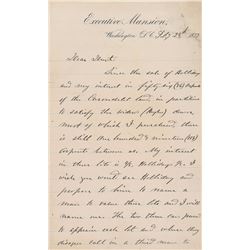 Executive Mansion,
Washington, D.C. Feby 28th 187
Dear Dent:
Since the sale of Holliday
and my interest in fifty six (56) 
of the Carondelet land, in partition
to satisfy the widows dower,
most of which I purchased, there
is still one hundred & nineteen (119)
arpents between us. My interest
in these lots is 3/4 Hollidays 1/4. I
wish you would see Holliday
and propose to him to name a
man to value these lots and I will
name one. The two then can proceed
to appraise each lot and where they
disagree call in a third man to